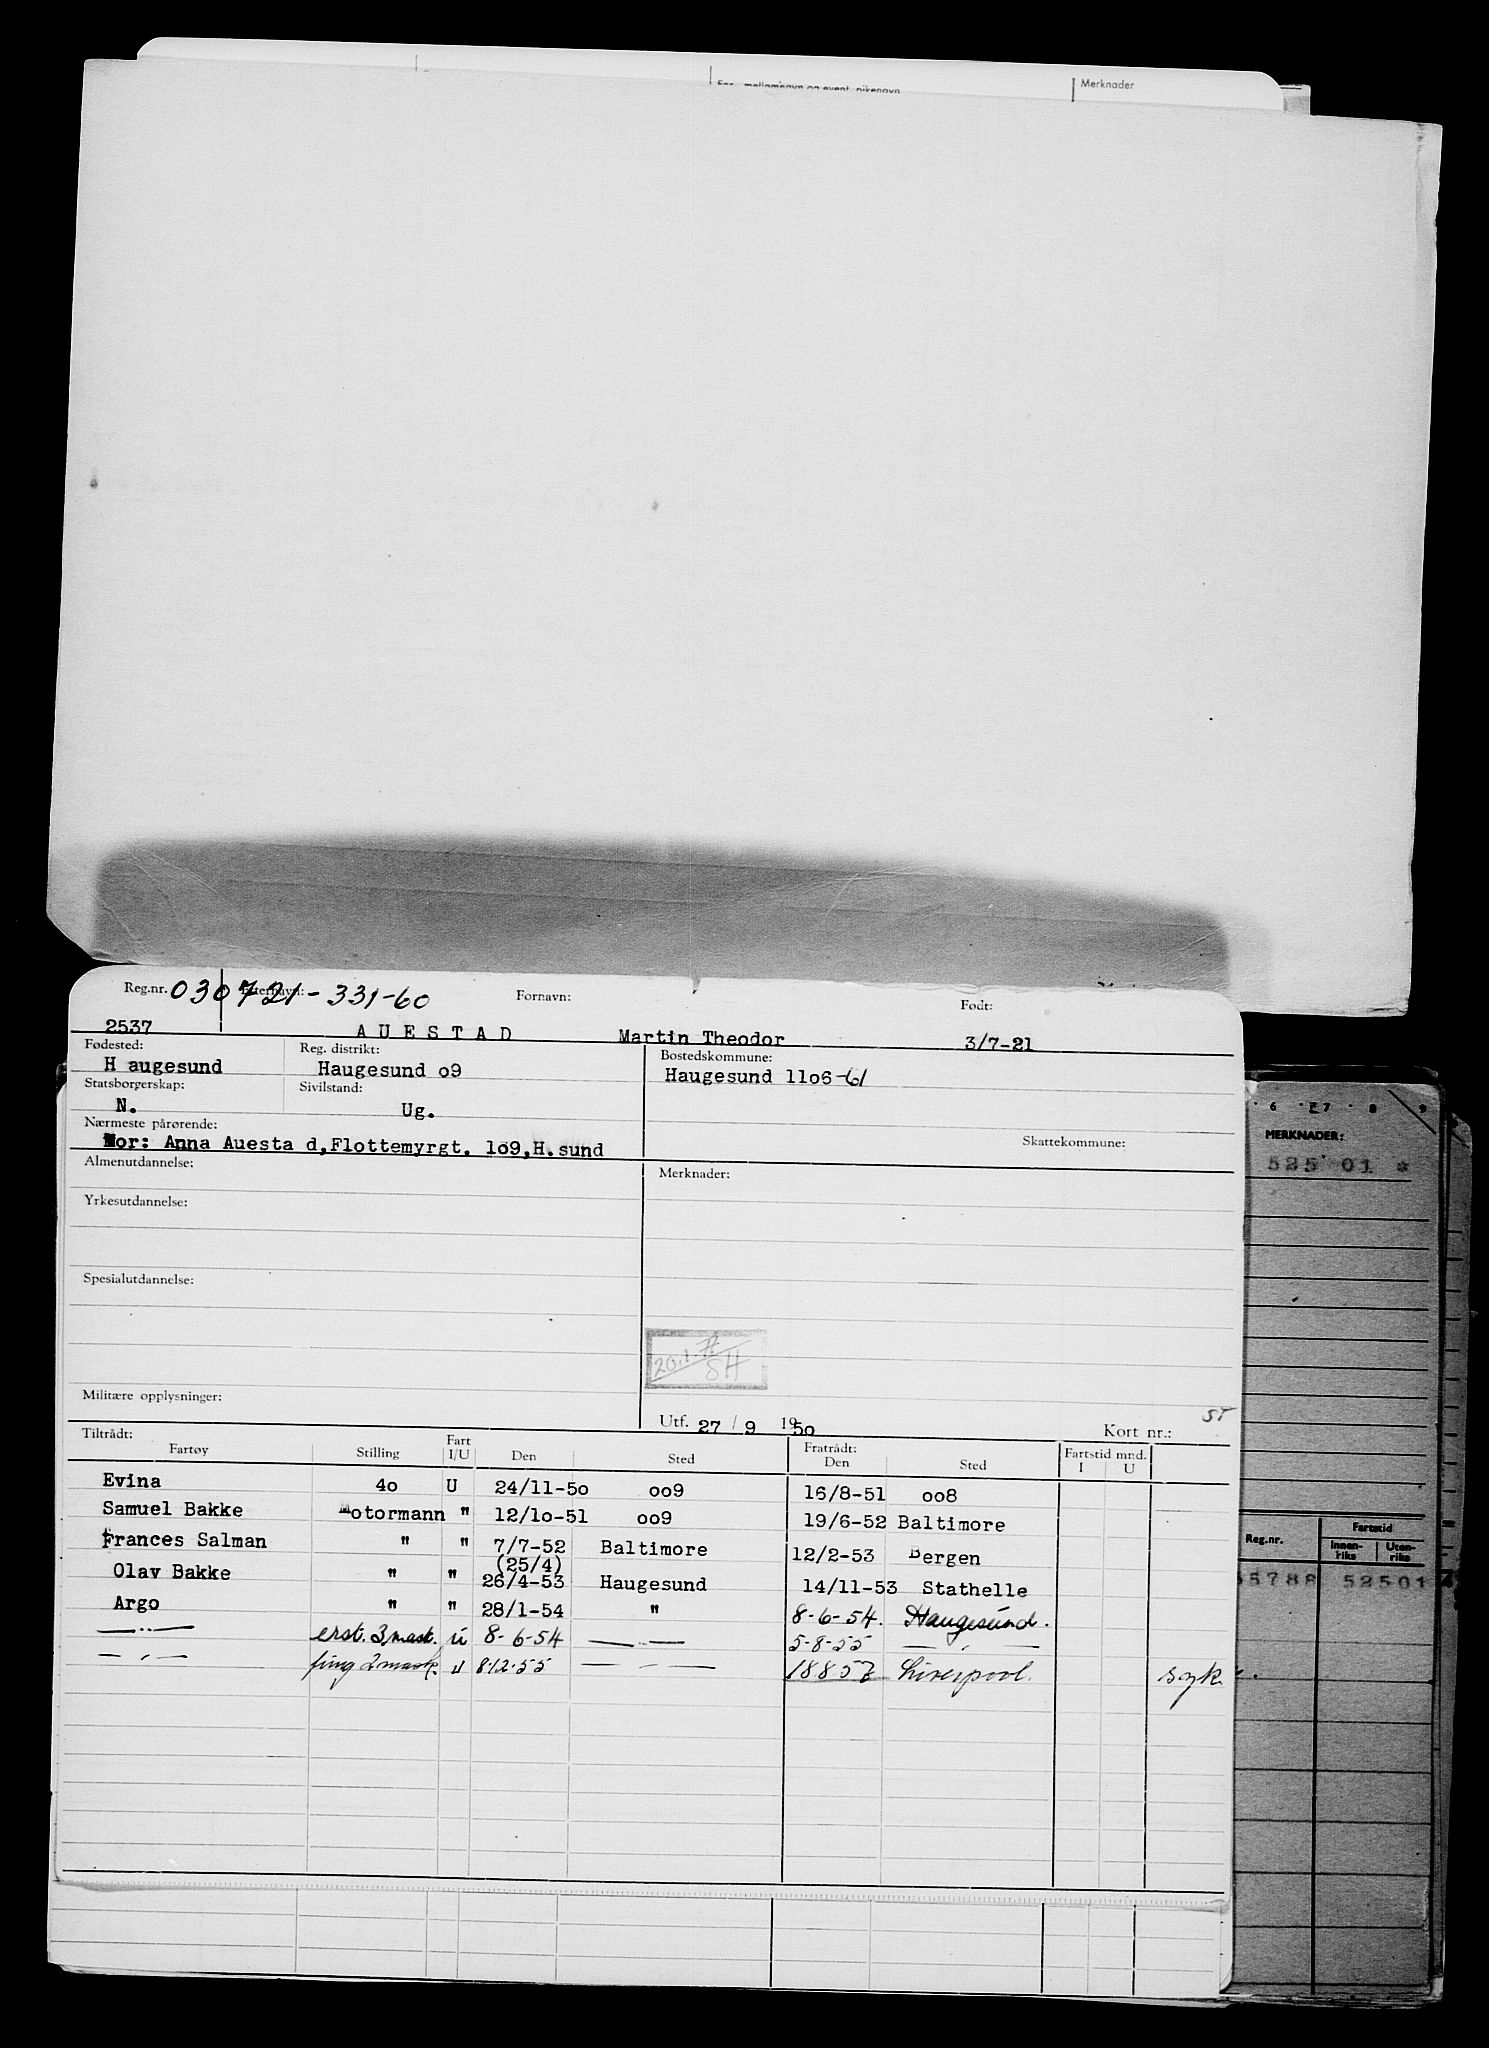 Merknader
Reg.nr. 030721-331-60 Etternavn: Fornavn: Født:
2537 AUESTAD Martin Theodor 3/7-21
Fødested: Reg. distrikt: Bostedskommune:
H augesund Haugesund o9 Haugesund 11o6-61
Statsborgerskap: Sivilstand:
N. Ug.
Nærmeste pårørende: Skattekommune:
Mor: Anna Auesta d,Flottemyrgt. 1o9,H.sund
Almenutdannelse: Merknader:
Yrkesutdannelse:
Spesialutdannelse:
20.1.72
SH
Militære opplysninger:
Utf. 27 / 9 1950 Kort nr.: ST
Tiltrådt: Fratrådt: Fartstid mnd.
Fartøy Stilling Fart I/U Den Sted Den Sted I U
Evina 4o U 24/11-5o oo9 16/8-51 oo8
Samuel Bakke Motormann " 12/1o-51 oo9 19/6-52 Baltimore
Frances Salman " " 7/7-52 Baltimore 12/2-53 Bergen
(25/4)
Olav Bakke " " 26/4-53 Haugesund 14/11-53 Stathelle
Argo " " 28/1-54 " 8-6-54. Haugesund.
—..— erst. 3 mask. u 8-6-54 —..— 5-8-55 — , —
— , — fung 2 mask. u 8.12.55 — .. — 18857 Liverpool. syk.
6 7 8 9
MERKNADER:
525 01 *
Reg.nr. Fartstid
Innen-riks Uten-riks
65788 52501